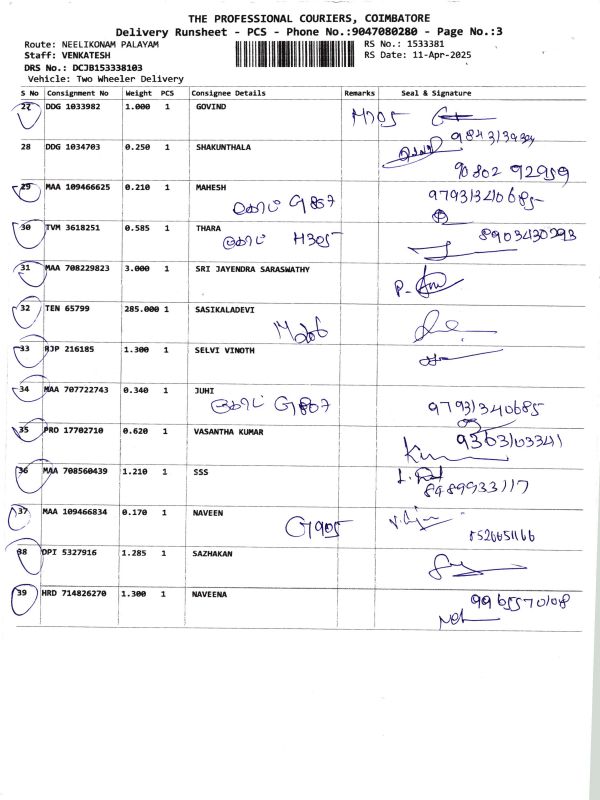 THE PROFESSIONAL COURIERS, COIMBATORE
Delivery Runsheet - PCS - Phone No.:9047080280 - Page No.:3
Route: NEELIKONAM PALAYAM RS No.: 1533381
Staff: VENKATESH RS Date: 11-Apr-2025
DRS No.: DCJB153338103
Vehicle: Two Wheeler Delivery
S No Consignment No Weight PCS Consignee Details Remarks Seal & Signature
27 DDG 1033982 1.000 1 GOVIND H705
28 DDG 1034703 0.250 1 SHAKUNTHALA
90802 92959
29 MAA 109466625 0.210 1 MAHESH 97931340685
கேட் G807
30 TVM 3618251 0.585 1 THARA 8903430293
கேட் H305
31 MAA 708229823 3.000 1 SRI JAYENDRA SARASWATHY
32 TEN 65799 285.000 1 SASIKALADEVI
33 RJP 216185 1.300 1 SELVI VINOTH
34 MAA 707722743 0.340 1 JUHI
கேட் G807 97931340685
35 PRO 17702710 0.620 1 VASANTHA KUMAR 9363103341
36 MAA 708560439 1.210 1 SSS
8489933117
37 MAA 109466834 0.170 1 NAVEEN
G905 8526651166
38 DPI 5327916 1.285 1 SAZHAKAN
39 HRD 714826270 1.300 1 NAVEENA 9965570108